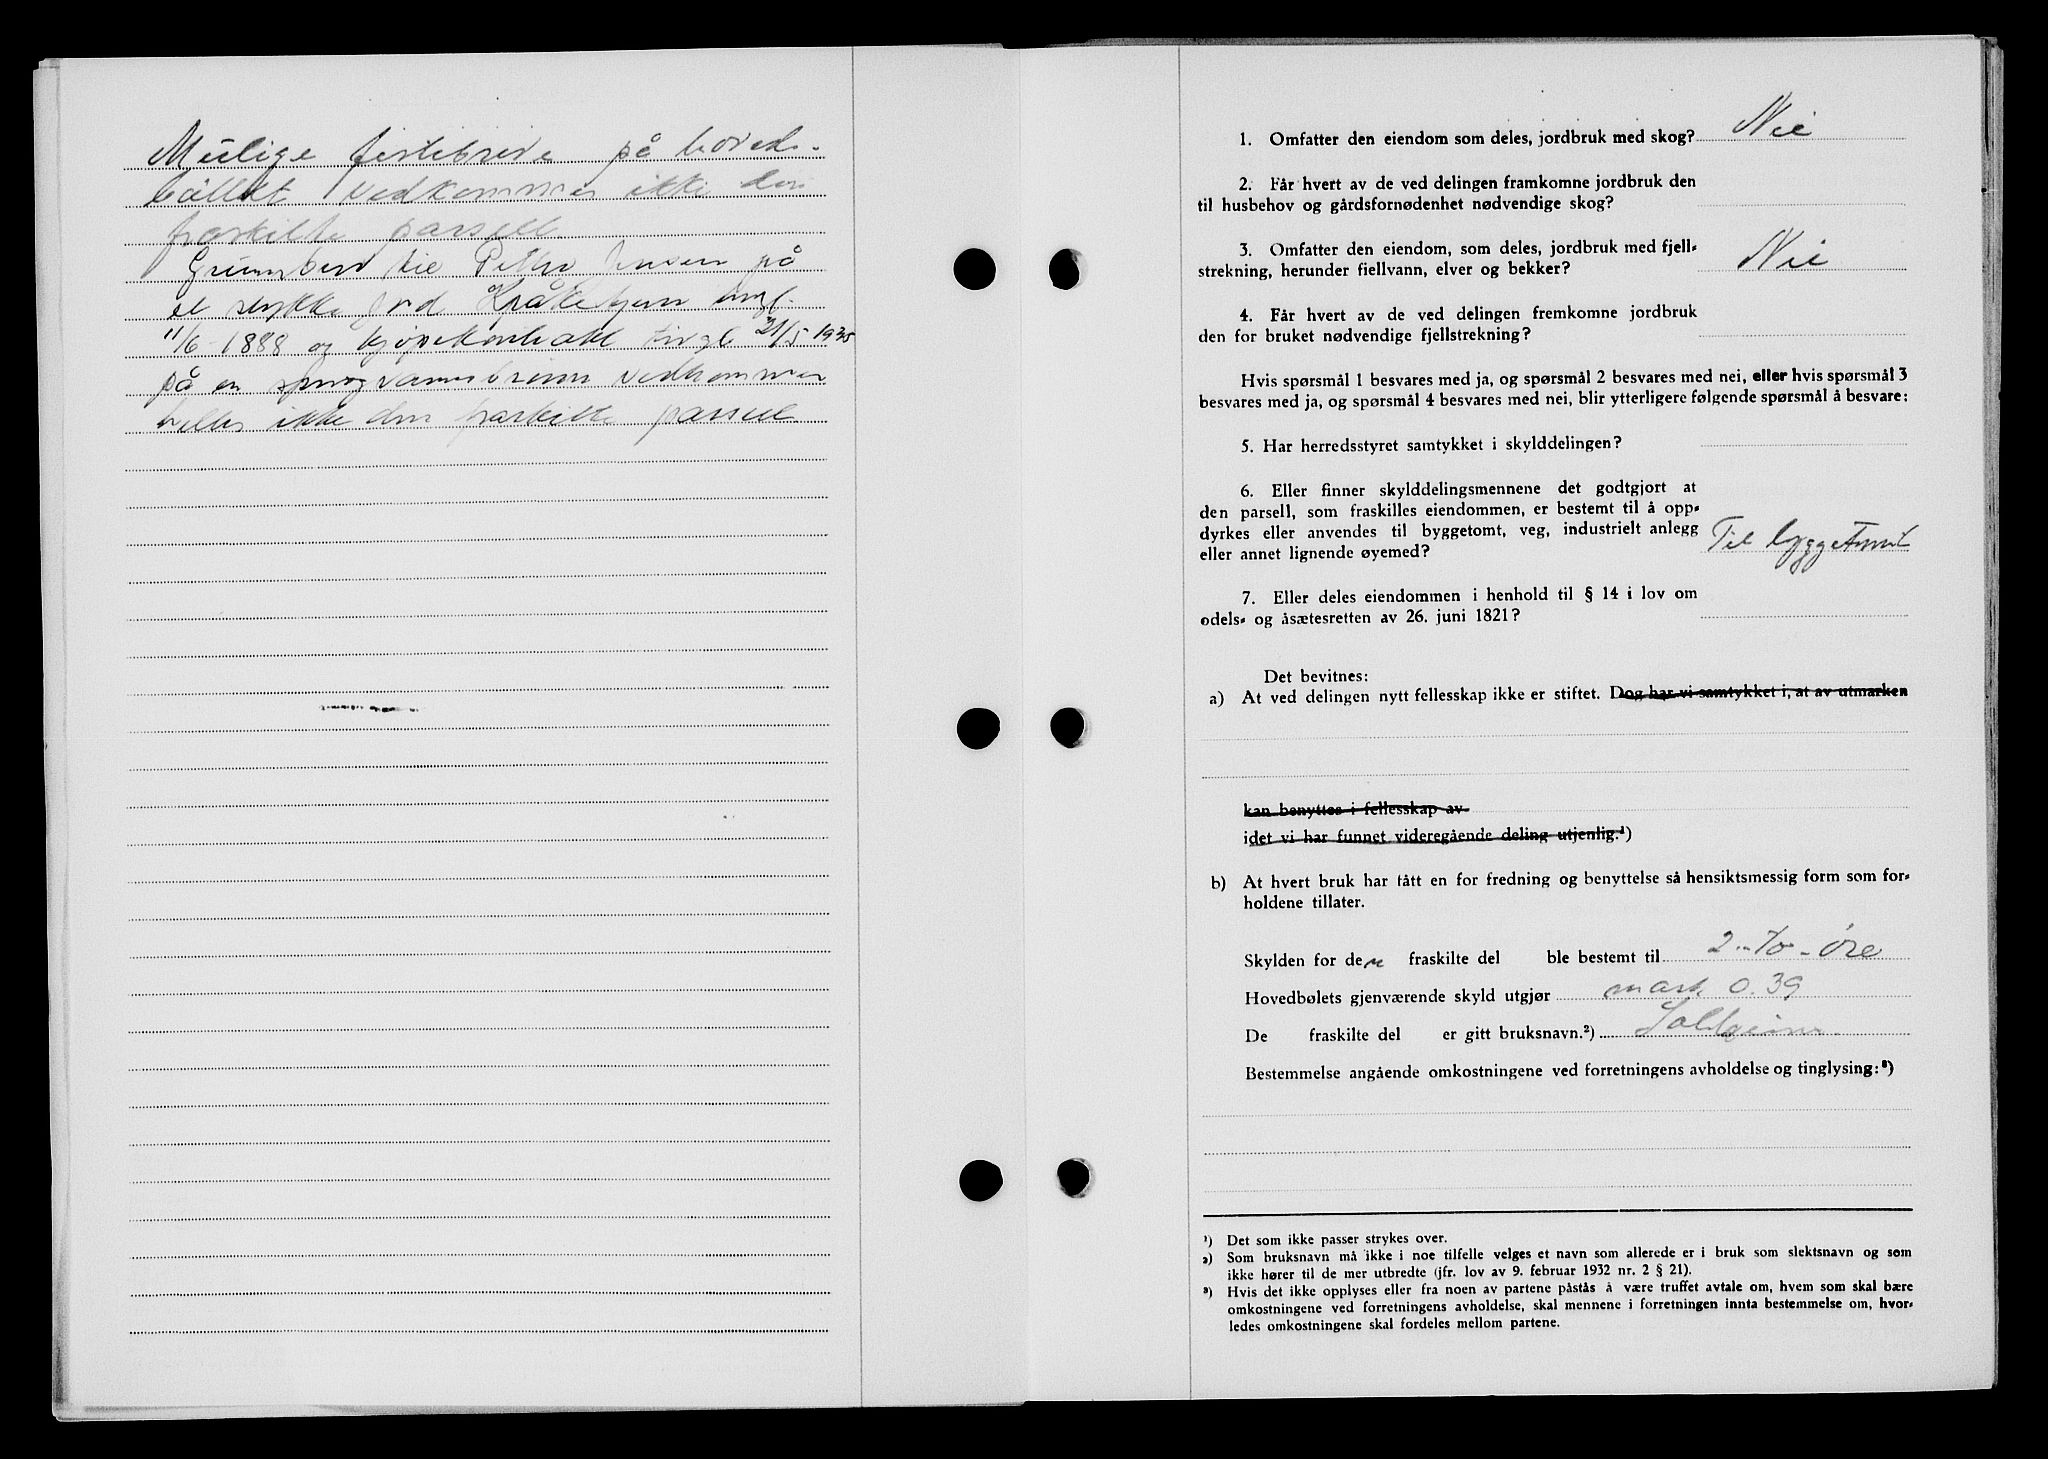 Mulige festebreve på hoved-
bøllet vedkommer ikke den
fraskilte parsell
Grunnbrev til Petter Jensen på
et stykke jord Kråketjern tingl.
11/6-1888 og kjøpekontrakt tingl 21/5 1935
på en vannbrønn vedkommer
heller ikke den fraskilte parsell.
1. Omfatter den eiendom som deles, jordbruk med skog? Nei
2. Får hvert av de ved delingen framkomne jordbruk den
til husbehov og gårdsfornødenhet nødvendige skog?
3. Omfatter den eiendom, som deles, jordbruk med fjell-
strekning, herunder fiellvann, elver og bekker? Nei
4. Får hvert av de ved delingen fremkomne jordbruk
den for bruket nødvendige fjellstrekning?
Hvis spørsmål 1 besvares med ja, og spørsmål 2 besvares med nei, eller hvis spørsmål 3
besvares med ja, og spørsmål 4 besvares med nei, blir ytterligere følgende spørsmål å besvare:
5. Har herredsstyret samtykket i skylddelingen?
6. Eller finner skylddelingsmennene det godtgjort at
den parsell, som fraskilles eiendommen, er bestemt til å opp-
dyrkes eller anvendes til byggetomt, veg, industrielt anlegg
eller annet lignende øyemed? Til byggetomt
7. Eller deles eiendommen i henhold til § 14 i lov om
odels- og åsætesretten av 26. juni 1821?
Det bevitnes:
a) At ved delingen nytt fellesskap ikke er stiftet. Dog har vi samtykket i, at av utmarken
kan benyttes i fellesskap av
idet vi har funnet videregående deling utjenlig.¹)
b) At hvert bruk har fått en for fredning og benyttelse så hensiktsmessig form som for-
holdene tillater.
Skylden for den fraskilte del ble bestemt til 2 - to - øre
Hovedbølets gjenværende skyld utgjør mark 0.39
De fraskilte del er gitt bruksnavn.²) Solheim
Bestemmelse angående omkostningene ved forretningens avholdelse og tinglysing:³)
¹) Det som ikke passer strykes over.
²) Som bruksnavn må ikke i noe tilfelle velges et navn som allerede er i bruk som slektsnavn og som
ikke hører til de mer utbredte (jfr. lov av 9. februar 1932 nr. 2 § 21).
³) Hvis det ikke opplyses eller fra noen av partene påstås å være truffet avtale om, hvem som skal bære
omkostningene ved forretningens avholdelse, skal mennene i forretningen innta bestemmelse om, hvor-
ledes omkostningene skal fordeles mellom partene.